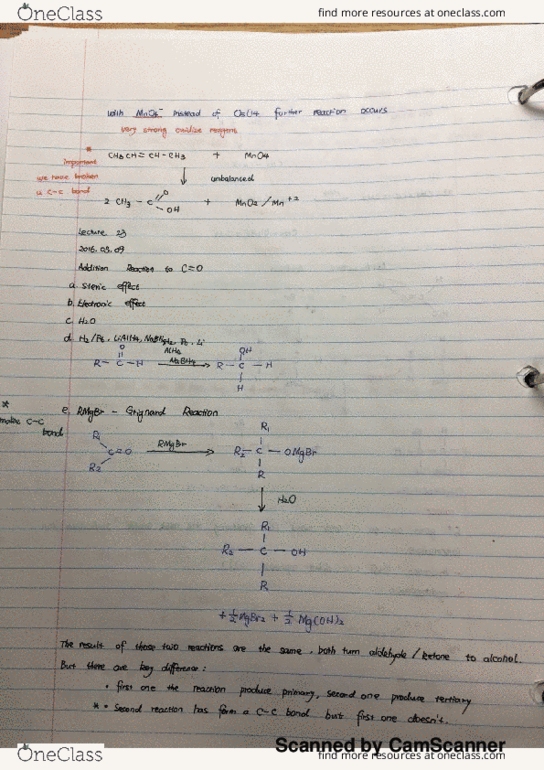 OneClass
find more resources at oneclass.com
with MnO4⁻ instead of OsO4 further reaction occurs
very strong oxidize reagent
*
important
CH3CH=CH-CH3 + MnO4
we have broken
a C-C bond
unbalanced
2 CH3-C
O
OH
+ MnO2/Mn+2
Lecture 23
2016.03.09
Addition Reaction to C=O
a. Steric effect
b. Electronic effect
c. H2O
d. H2/Pt, LiAlH4, NaBH4, Pt, Li
O
OH
R-C-H
NaBH4
R-C-H
H
*
make C-C
bond
e. RMgBr - Grignard Reaction
R1
R
C=O
R2
RMgBr
R2-C-OMgBr
R
H2O
R1
R2-C-OH
R
+ 1/2 MgBr2 + 1/2 Mg(OH)2
The result of those two reactions are the same, both turn aldehyde/ketone to alcohol.
But there are key difference:
• first one the reaction produce primary, second one produce tertiary
* • second reaction has form a C-C bond but first one doesn't.
Scanned by CamScanner
OneClass
find more resources at oneclass.com